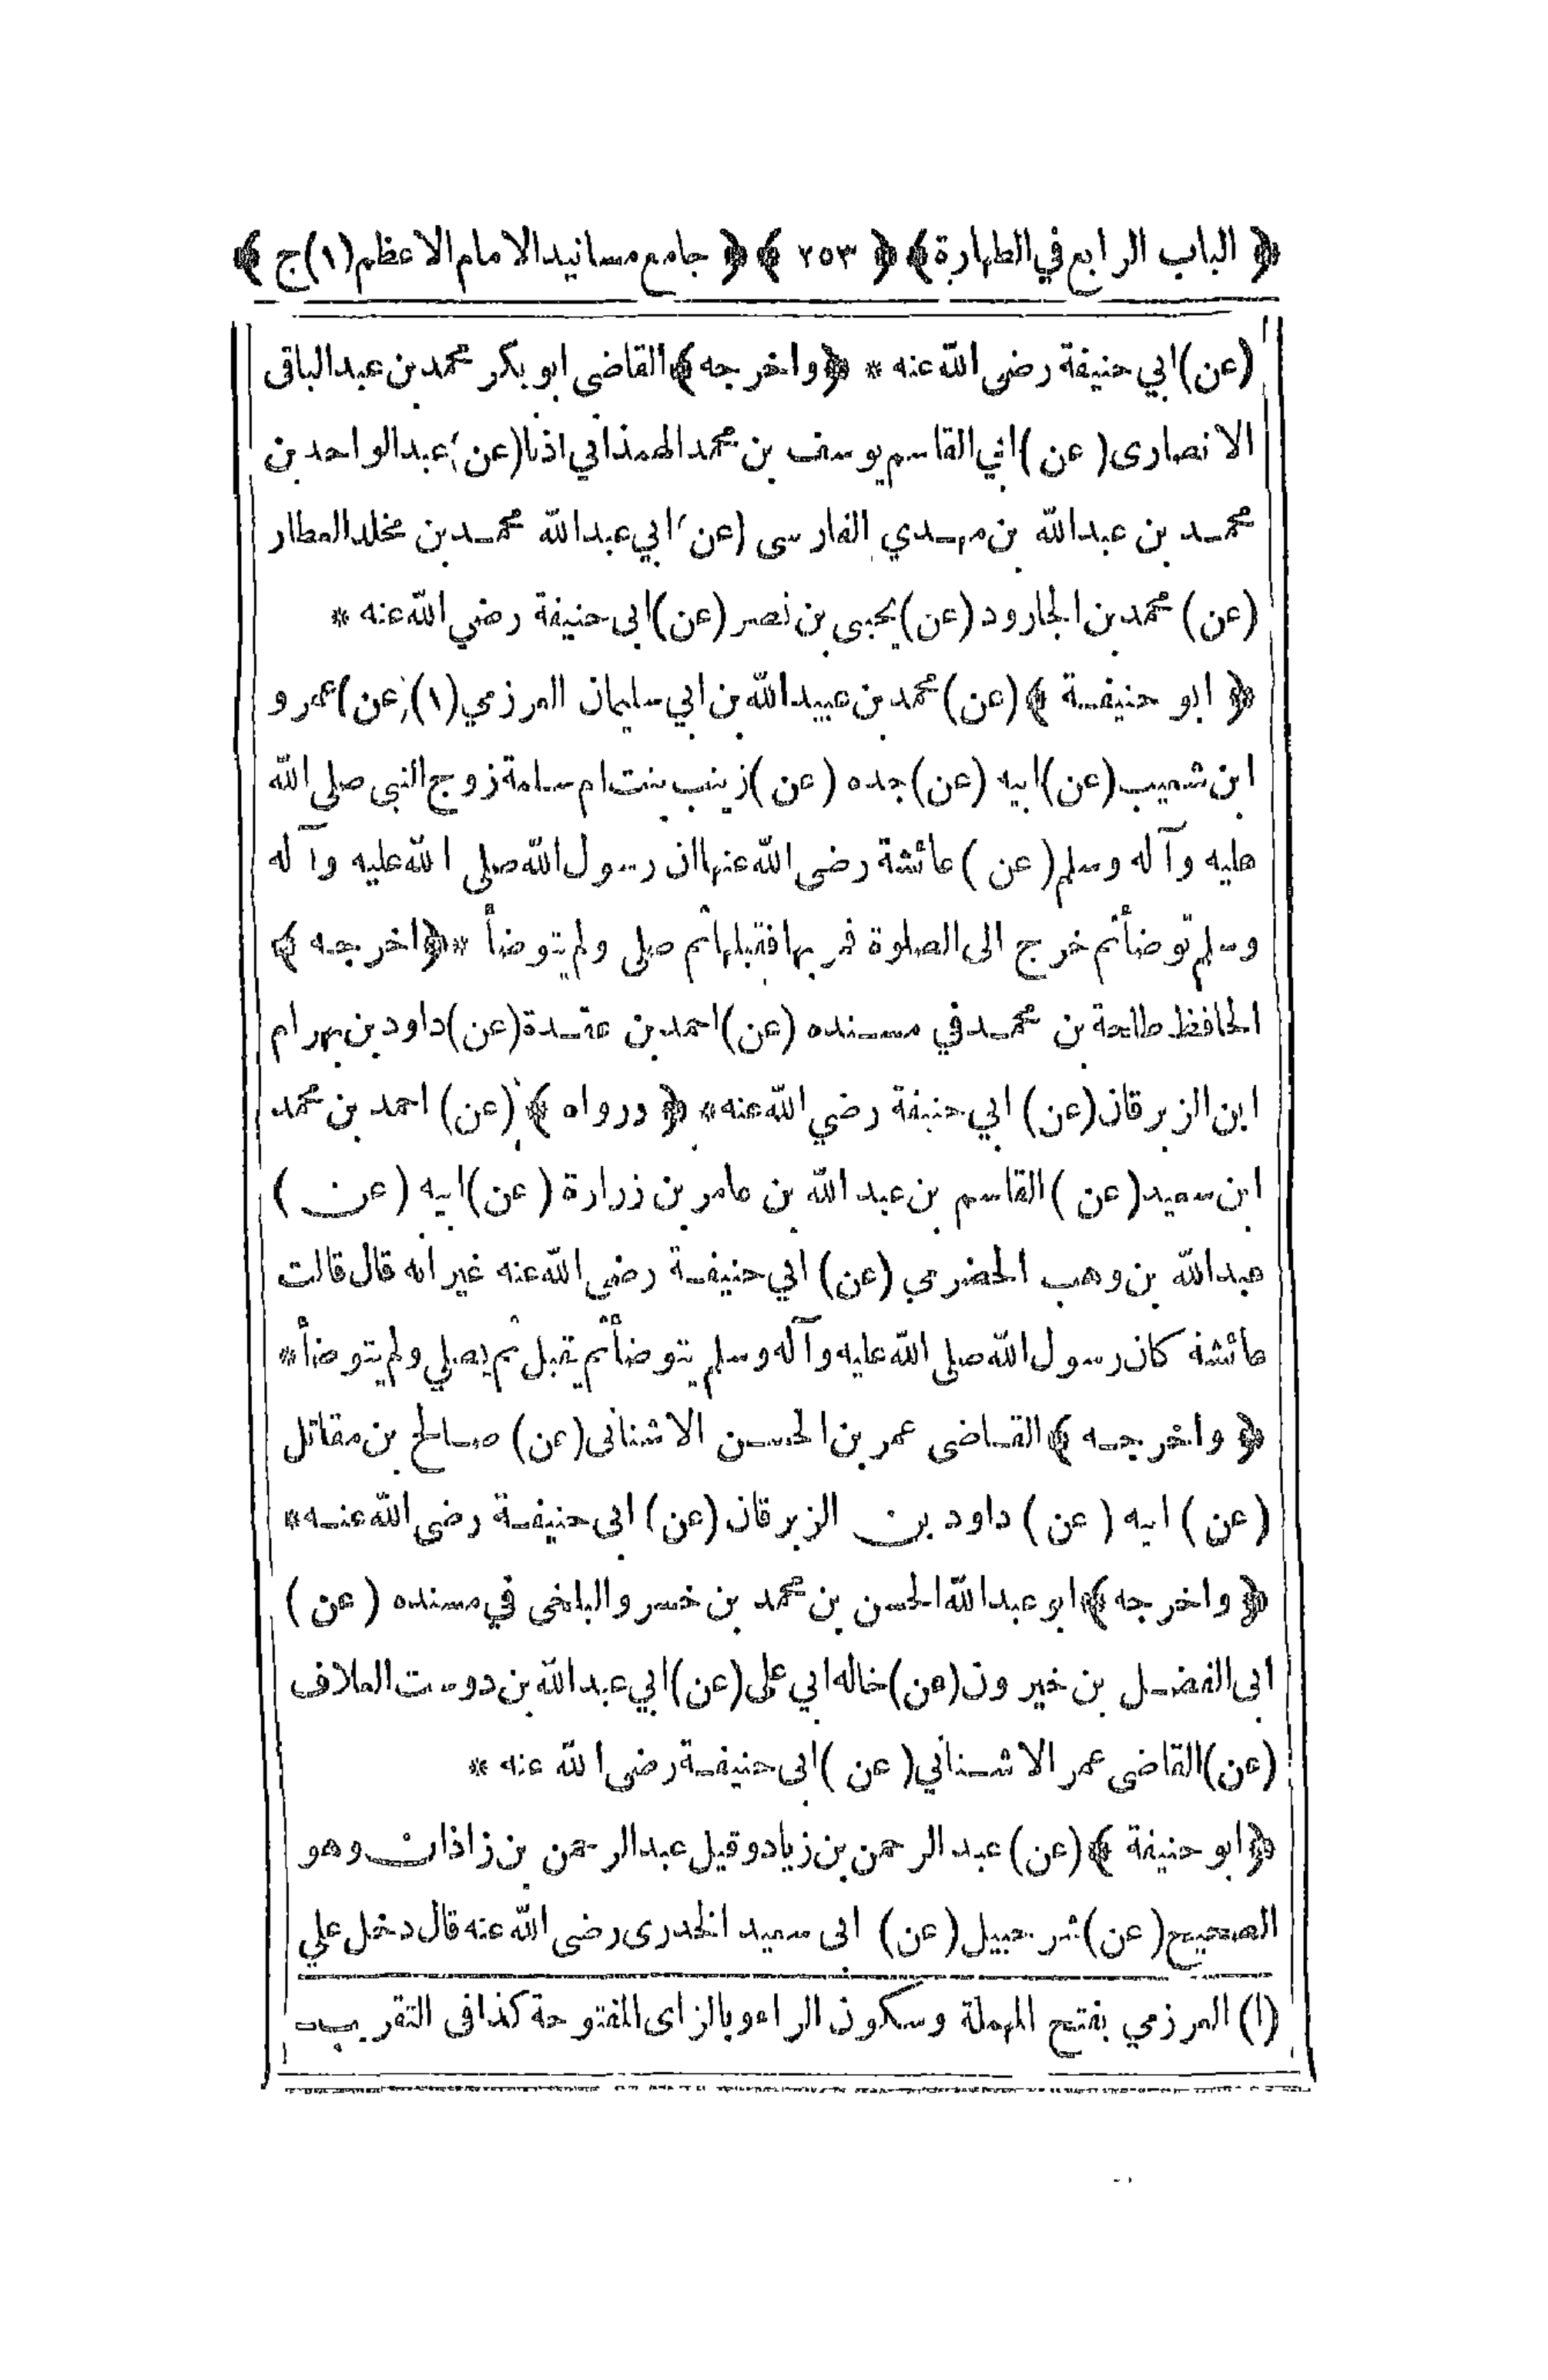 ﴿ الباب الرابع في الطهارة ﴾ ﴿ ٢٥٣ ﴾ ﴿ جامع مسانيد الامام الاعظم (١) ج ﴾
(عن) ابي حنيفة رضى الله عنه * ﴿ واخرجه ﴾ القاضى ابو بكر محمد بن عبد الباقى
الانصارى (عن) ابي القاسم يوسف بن محمد الهمذاني اذنا (عن) عبد الواحد بن
محمد بن عبد الله بن مهدي الفارسى (عن) ابي عبد الله محمد بن مخلد العطار
(عن) محمد بن الجارود (عن) يحيى بن نصر (عن) ابى حنيفة رضي الله عنه *
﴿ ابو حنيفة ﴾ (عن) محمد بن عبيد الله بن ابي سليمان العرزمي (١) (عن) عمرو
ابن شعيب (عن) ابيه (عن) جده (عن) زينب بنت ام سلمة زوج النبى صلى الله
عليه وآله وسلم (عن) عائشة رضى الله عنها ان رسول الله صلى الله عليه وآله
وسلم توضأ ثم خرج الى الصلوة فمر بها فقبلها ثم صلى ولم يتوضأ * ﴿ اخرجه ﴾
الحافظ طلحة بن محمد في مسنده (عن) احمد بن عقدة (عن) داود بن بهرام
ابن الزبرقان (عن) ابي حنيفة رضي الله عنه * ﴿ ورواه ﴾ (عن) احمد بن محمد
ابن سعيد (عن) القاسم بن عبد الله بن عامر بن زرارة (عن) ابيه (عن)
عبد الله بن وهب الحضرمي (عن) ابي حنيفة رضى الله عنه غير انه قال قالت
عائشة كان رسول الله صلى الله عليه وآله وسلم يتوضأ ثم يقبل ثم يصلي ولم يتوضأ *
﴿ واخرجه ﴾ القاضى عمر بن الحسن الاشنانى (عن) صالح بن مقاتل
(عن) ابيه (عن) داود بن الزبرقان (عن) ابى حنيفة رضى الله عنه *
﴿ واخرجه ﴾ ابو عبد الله الحسن بن محمد بن خسرو البلخى في مسنده (عن)
ابى الفضل بن خيرون (عن) خاله ابي على (عن) ابي عبد الله بن دوست العلاف
(عن) القاضى عمر الاشناني (عن) ابى حنيفة رضى الله عنه *
﴿ ابو حنيفة ﴾ (عن) عبد الرحمن بن زياد وقيل عبد الرحمن بن زاذان وهو
الصحيح (عن) شرحبيل (عن) ابى سعيد الخدرى رضى الله عنه قال دخل علي
(١) العرزمي بفتح المهملة وسكون الراء وبالزاى المفتوحة كذا فى التقريب